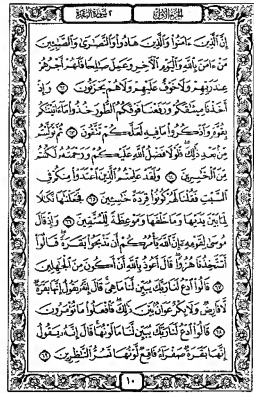 الجزء الأول
٢ سورة البقرة
إن الذين ءامنوا والذين هادوا والنصارى والصابئين
من ءامن بالله واليوم الآخر وعمل صالحا فلهم أجرهم
عند ربهم ولا خوف عليهم ولا هم يحزنون ٦٢ وإذ
أخذنا ميثاقكم ورفعنا فوقكم الطور خذوا ما ءاتيناكم
بقوة واذكروا ما فيه لعلكم تتقون ٦٣ ثم توليتم
من بعد ذلك فلولا فضل الله عليكم ورحمته لكنتم
من الخاسرين ٦٤ ولقد علمتم الذين اعتدوا منكم في
السبت فقلنا لهم كونوا قردة خاسئين ٦٥ فجعلناها نكالا
لما بين يديها وما خلفها وموعظة للمتقين ٦٦ وإذ قال
موسى لقومه إن الله يأمركم أن تذبحوا بقرة قالوا
أتتخذنا هزوا قال أعوذ بالله أن أكون من الجاهلين
٦٧ قالوا ادع لنا ربك يبين لنا ما هي قال إنه يقول إنها بقرة
لا فارض ولا بكر عوان بين ذلك فافعلوا ما تؤمرون
٦٨ قالوا ادع لنا ربك يبين لنا ما لونها قال إنه يقول
إنها بقرة صفراء فاقع لونها تسر الناظرين ٦٩
١٠